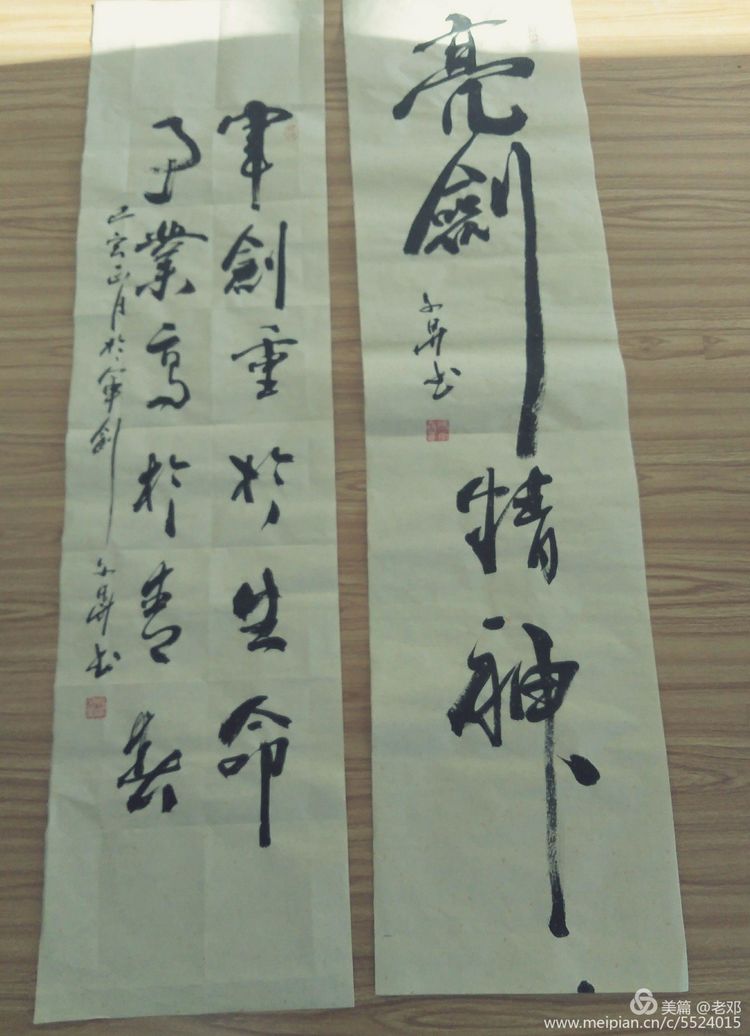 亮劍精神
文昇书
軍劍重於生命
事業高於青春
己亥正月於軍剑 文昇书
美篇 @老邓
www.meipian.cn/c/5524015